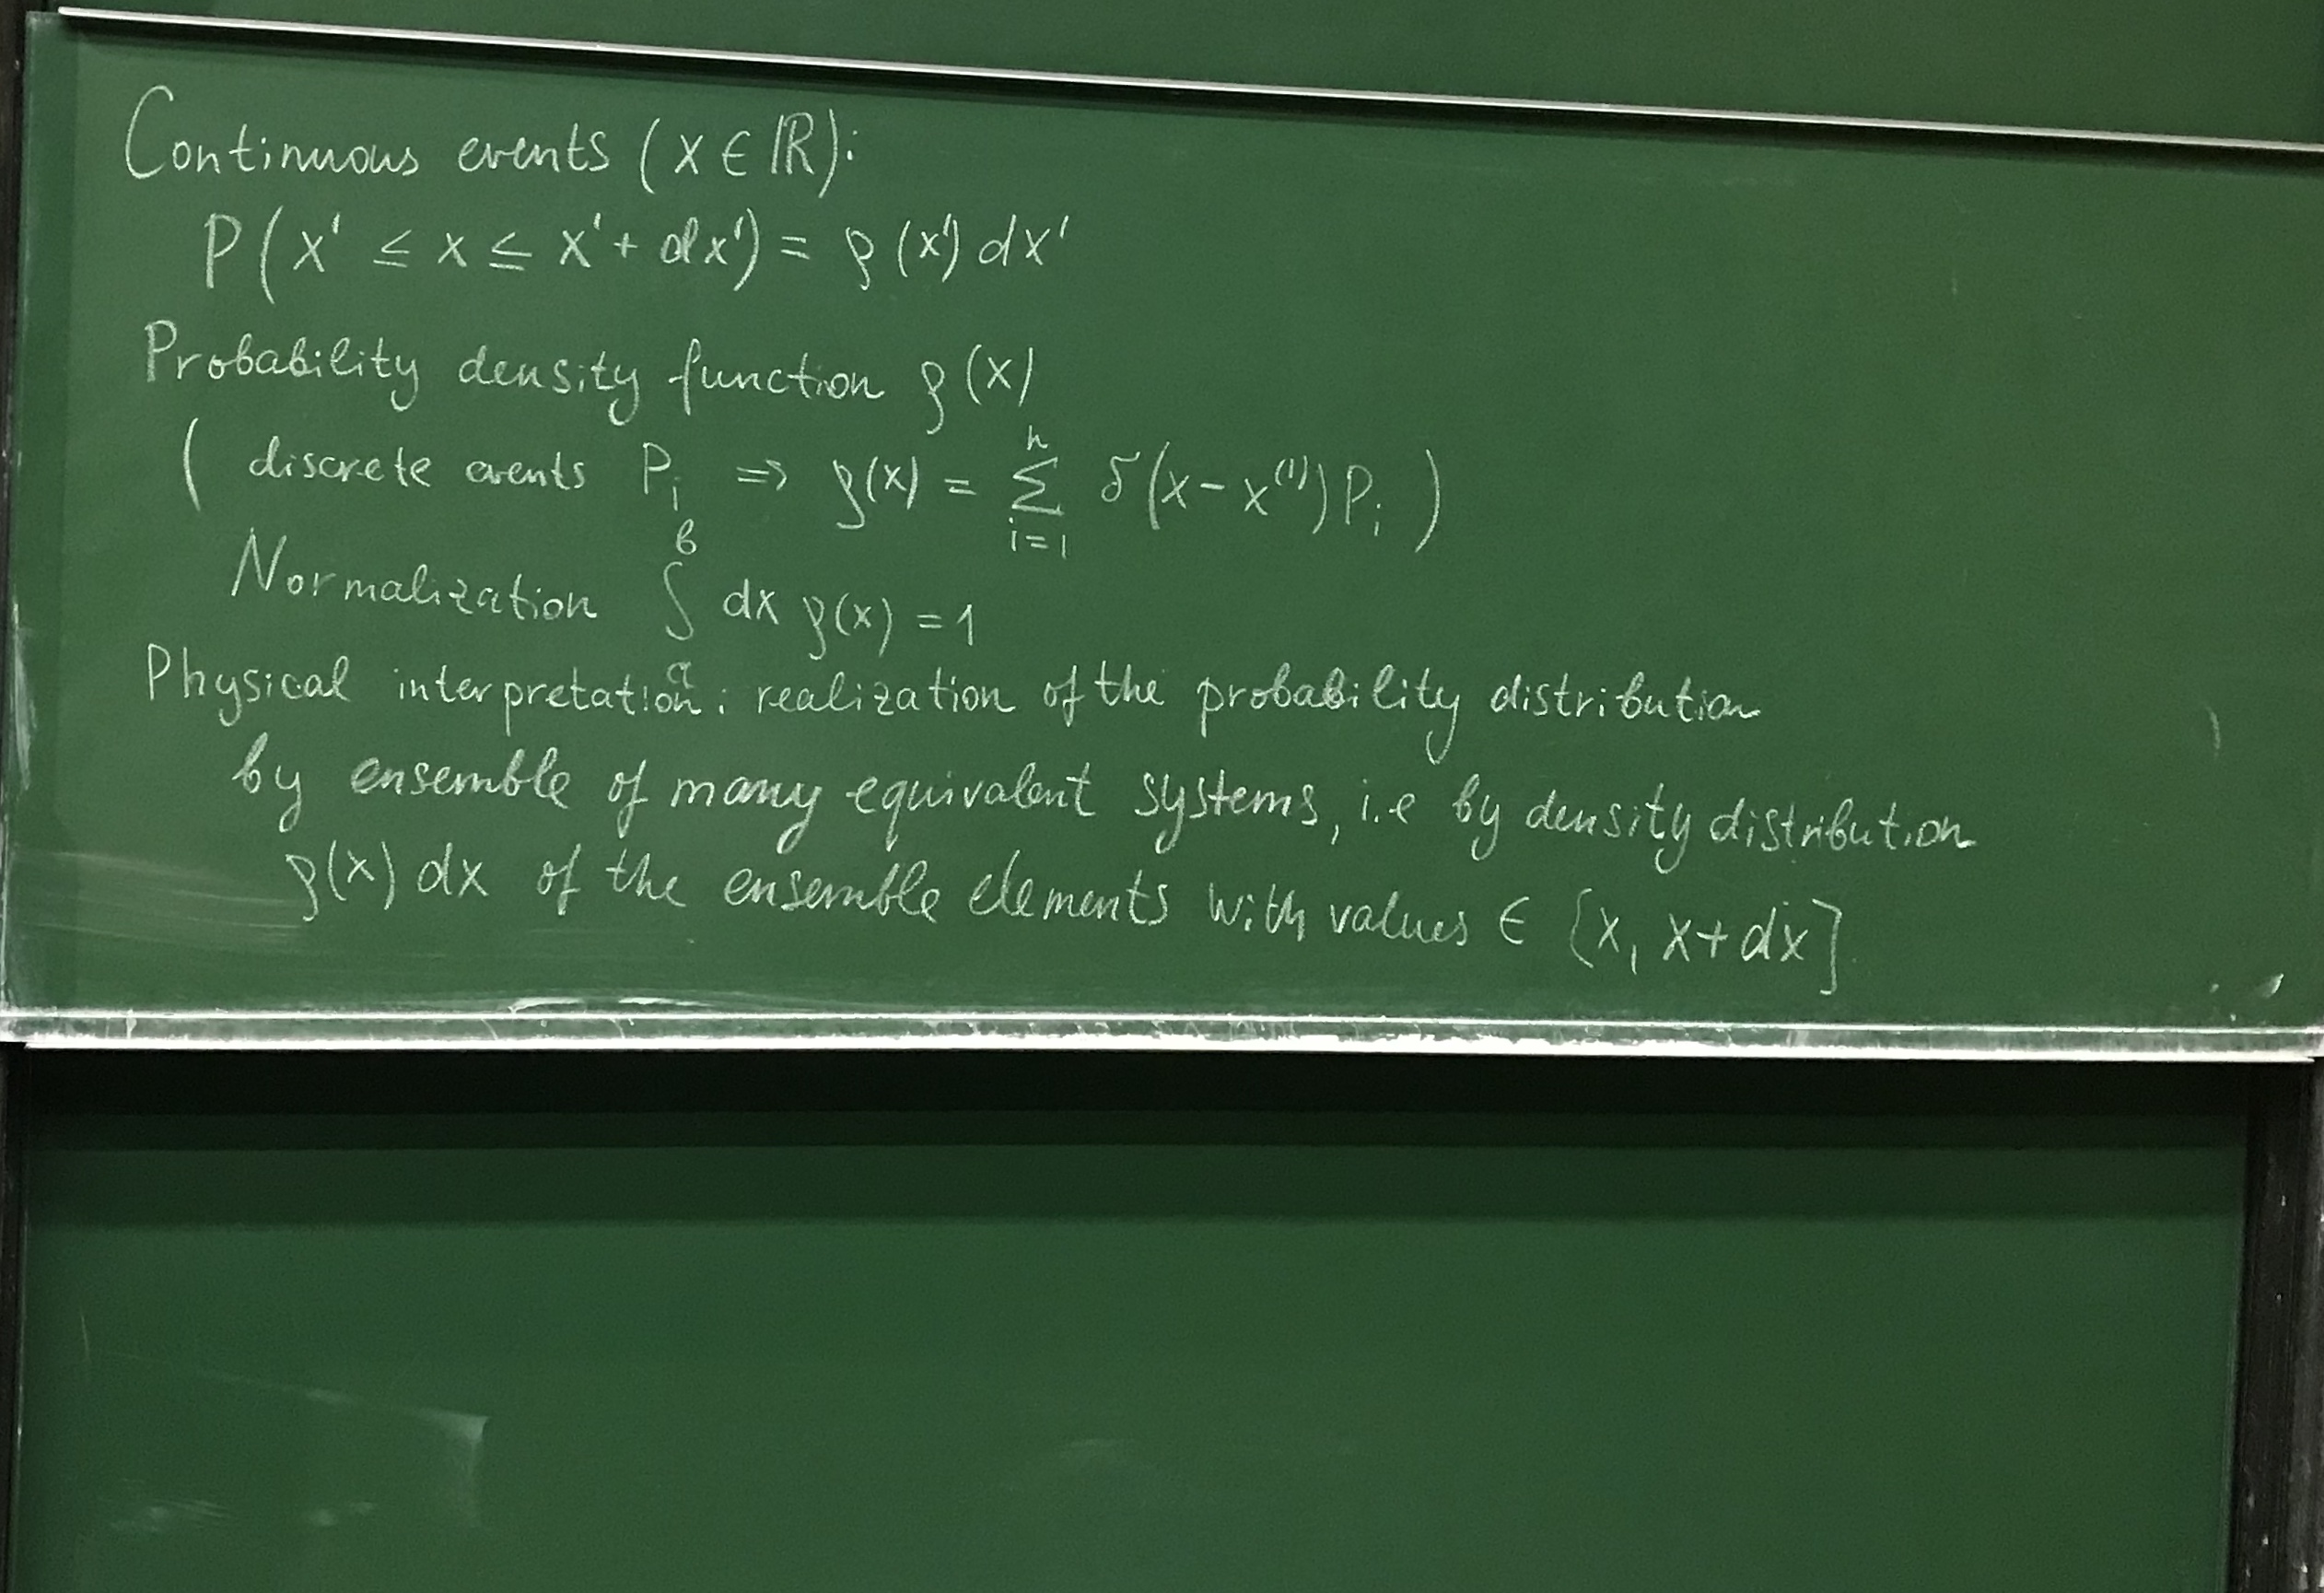 Continuous events (x ∈ ℝ):
P(x' ≤ x ≤ x' + dx') = ρ(x') dx'
Probability density function ρ(x)
( discrete events Pᵢ ⇒ ρ(x) = ∑ᵢ₌₁ⁿ δ(x - x⁽ⁱ⁾) Pᵢ )
Normalization ∫ₐᵇ dx ρ(x) = 1
Physical interpretation: realization of the probability distribution
by ensemble of many equivalent systems, i.e by density distribution
ρ(x) dx of the ensemble elements with values ∈ [x, x+dx]